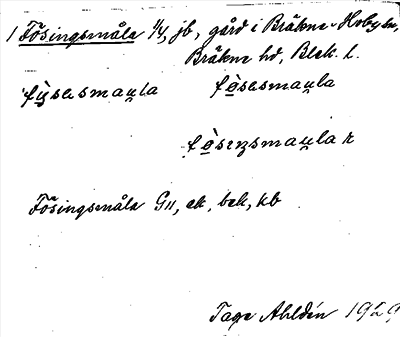 1 Fösingsmåla 1/4, jb, gård i Bräkne-Hoby sn,
Bräkne hd, Blek. l.
fø̱sasmau̯la
fɵ̱sɪŋsmau̯la r
Fösingsmåla G11, ek, bek, kb
Tage Ahldén 1929